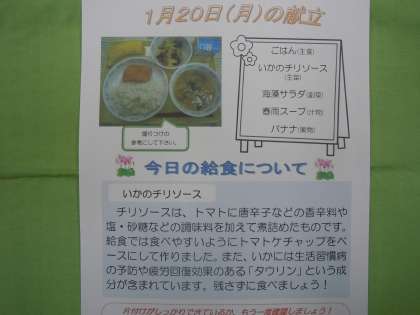 1月20日(月)の献立
ごはん(主食)
いかのチリソース
(主菜)
海藻サラダ(副菜)
春雨スープ(汁物)
バナナ(果物)
盛りつけの
参考にして下さい。
今日の給食について
いかのチリソース
チリソースは、トマトに唐辛子などの香辛料や
塩・砂糖などの調味料を加えて煮詰めたものです。
給食では食べやすいようにトマトケチャップをベ
ースにして作りました。また、いかには生活習慣病
の予防や疲労回復効果のある「タウリン」という成
分が含まれています。残さずに食べましょう!
片付けがしっかりできているか、もう一度確認しましょう!